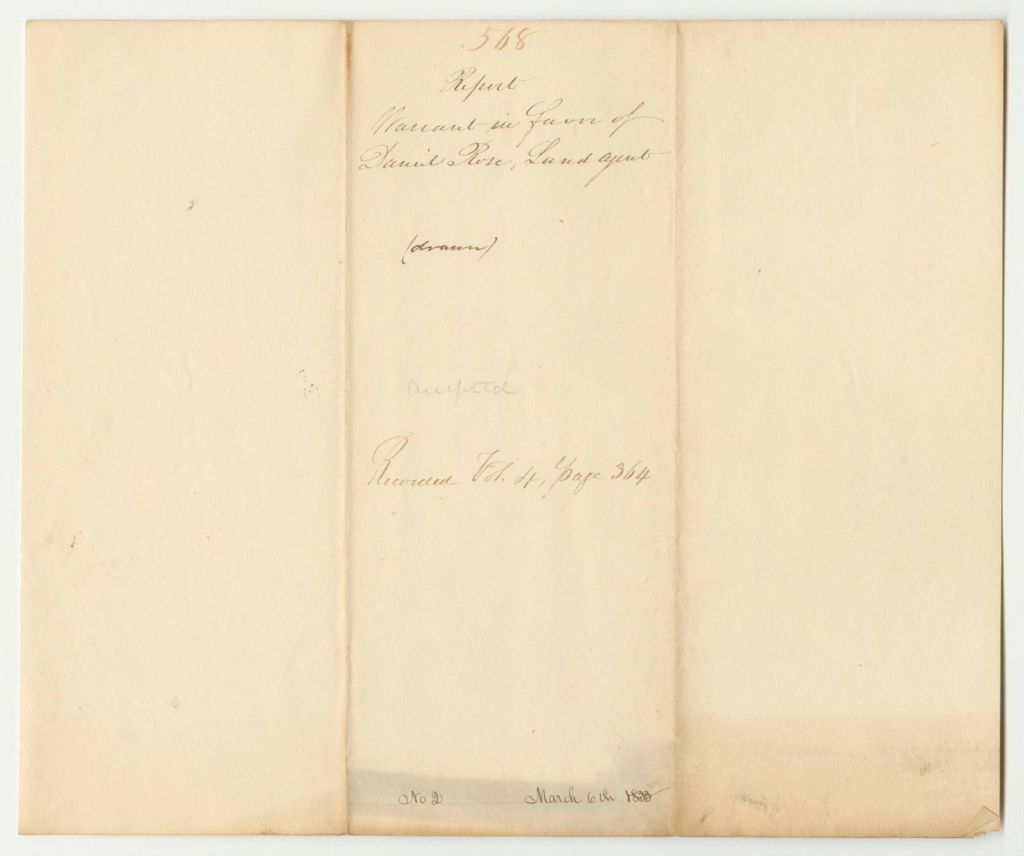 568
Report
Warrant in favor of
Daniel Rose, Land agent
(drawn)
accepted
Recorded Vol. 4, Page 364
No 2 March 6th 1833